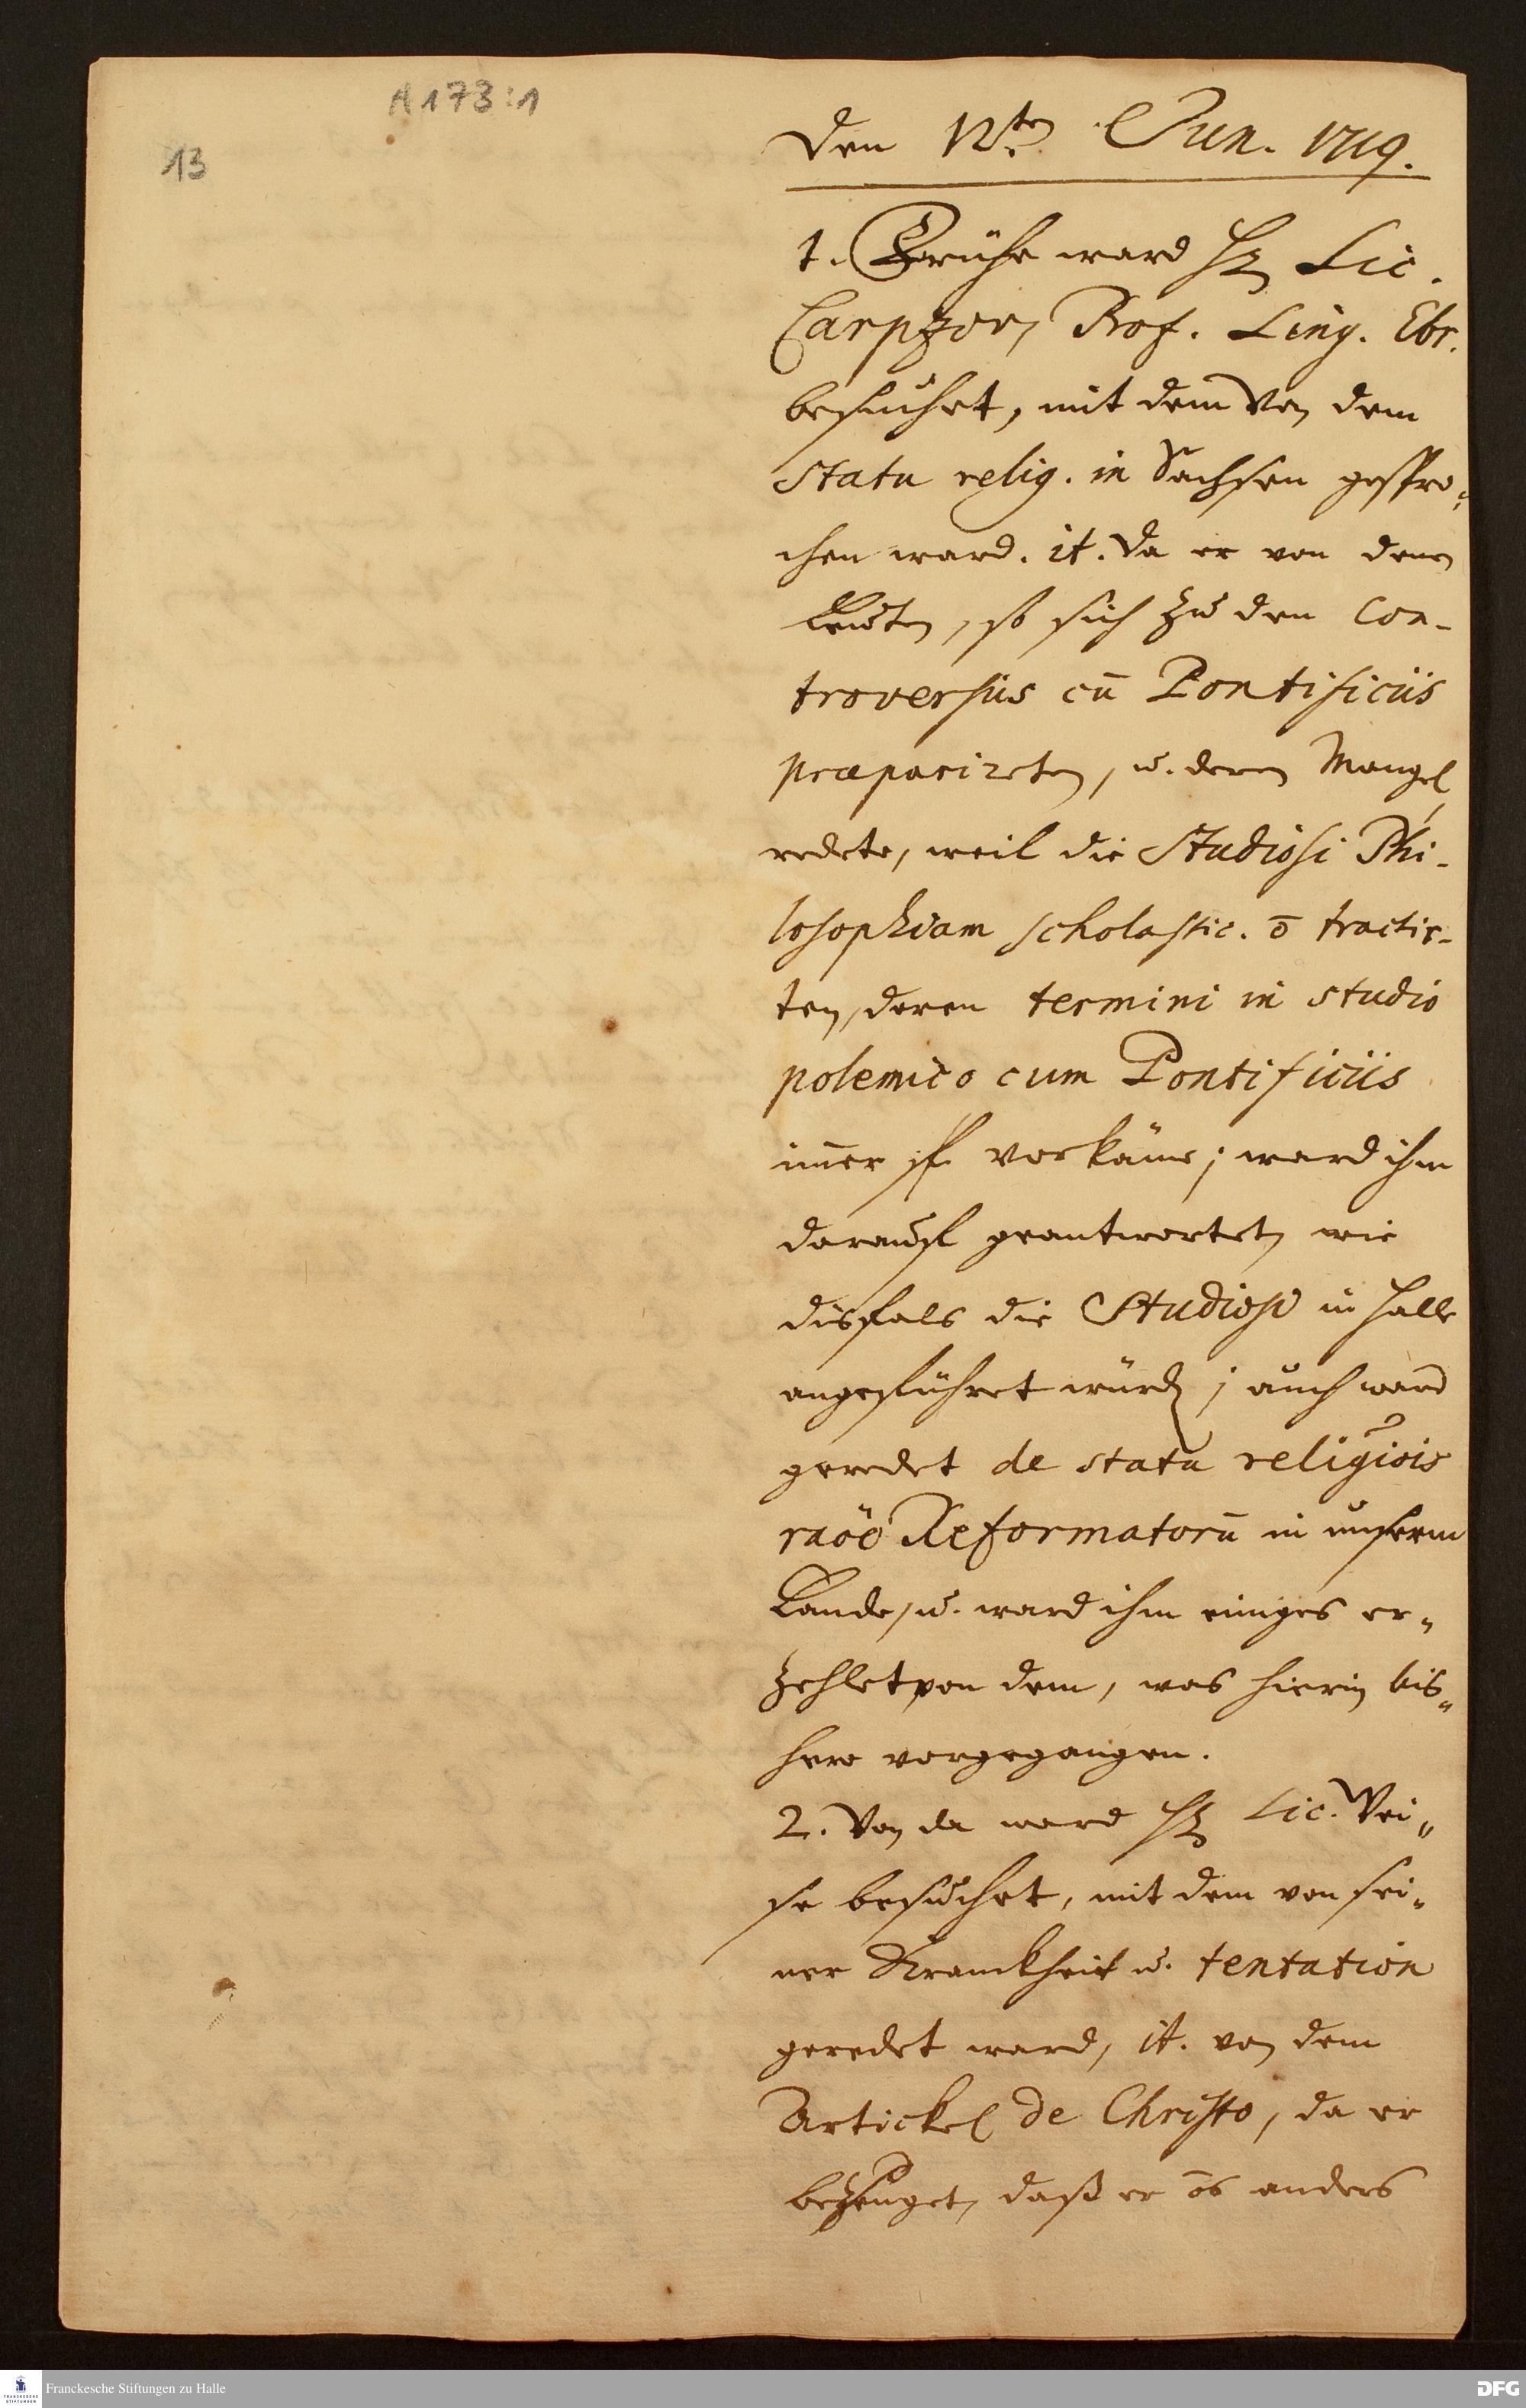 A 173:1
13
Den 12ten Jun. 1719.
1. Frühe ward H Lic.
Carpzov, Prof. Ling. Ebr.
besuchet, mit dem von dem
statu relig. in Sachsen gespro-
chen ward. it. da er von denen
Leuten, so sich zu den Con-
troversiis cū Pontificiis
præparireten, u. deren Mangel
redete, weil die Studiosi Phi-
losophiam scholastic. ō tractir-
ten, deren termini in studio
polemico cum Pontificiis
im̄er vorkäme; ward ihm
darauf geantwortet, wie
disfals die Studiosi in Halle
angeführet würd; auch ward
geredet de statu religiōis
raōe Reformatorū in unserm
Lande, u. ward ihm einiges er-
zehlet von dem, was hierin bis-
hero vorgegangen.
2. Von da ward H Lic. Wei-
se besuchet, mit dem von sei-
ner Kranckheit u. tentation
geredet ward, it. von dem
Artickel de Christo, da er
bezeuget, daß er ōs anders
Franckesche Stiftungen zu Halle
DFG